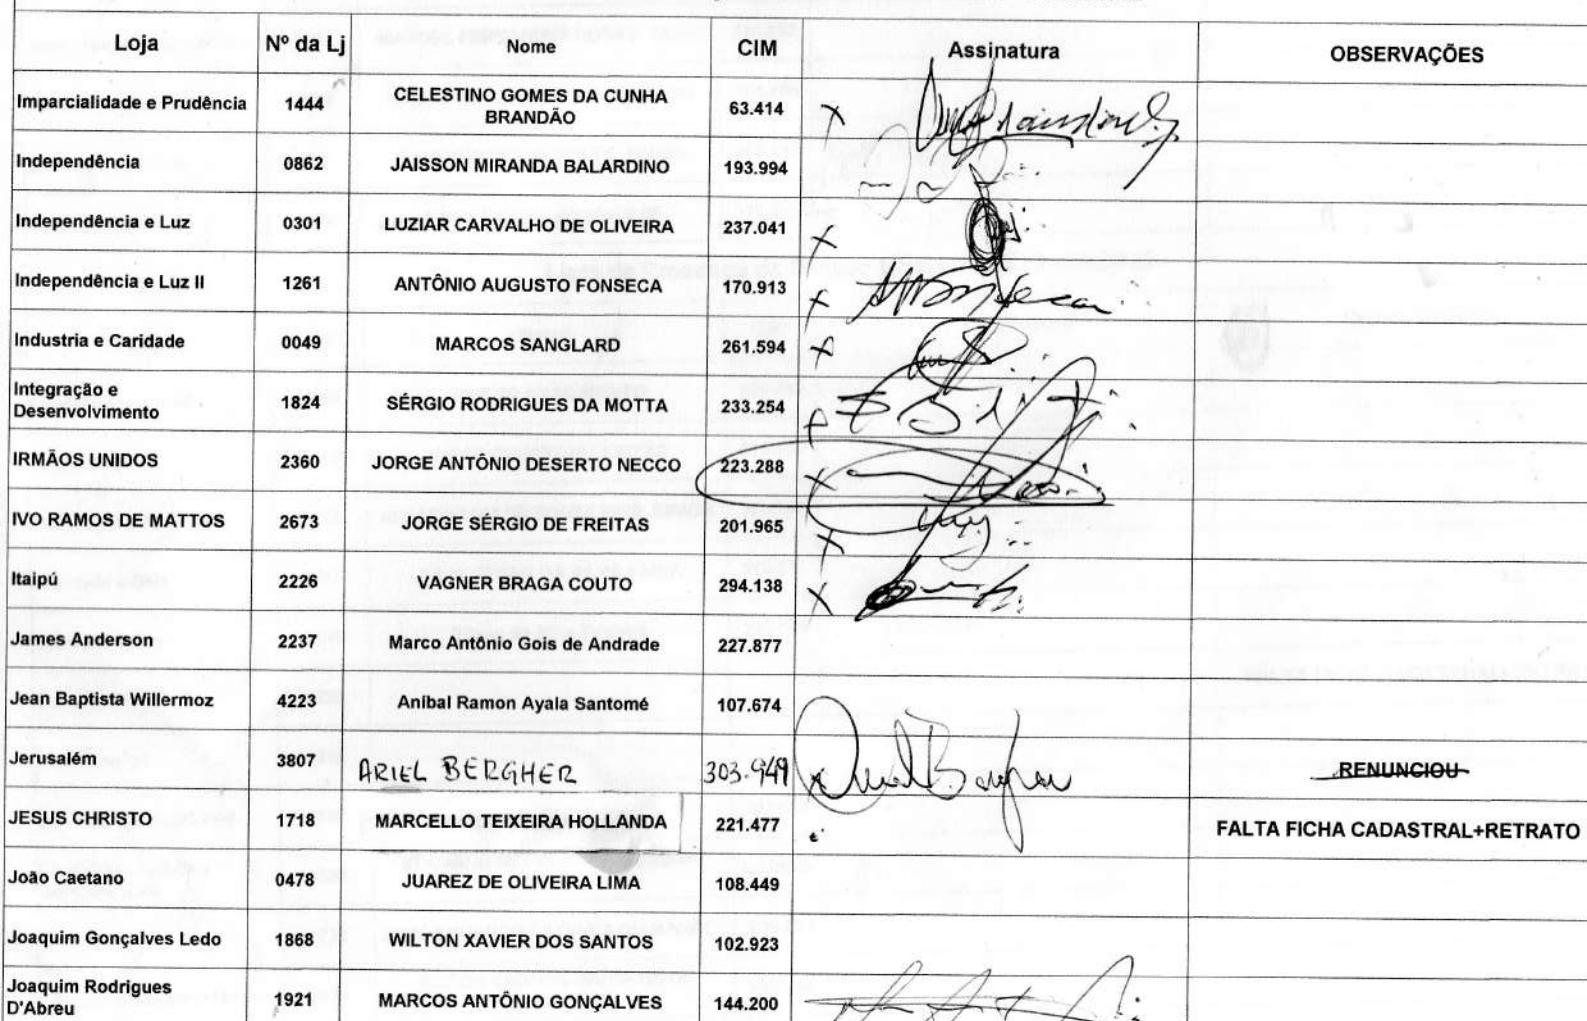 Loja Nº da Lj Nome CIM Assinatura OBSERVAÇÕES
Imparcialidade e Prudência 1444 CELESTINO GOMES DA CUNHA BRANDÃO 63.414
Independência 0862 JAISSON MIRANDA BALARDINO 193.994
Independência e Luz 0301 LUZIAR CARVALHO DE OLIVEIRA 237.041
Independência e Luz II 1261 ANTÔNIO AUGUSTO FONSECA 170.913
Industria e Caridade 0049 MARCOS SANGLARD 261.594
Integração e Desenvolvimento 1824 SÉRGIO RODRIGUES DA MOTTA 233.254
IRMÃOS UNIDOS 2360 JORGE ANTÔNIO DESERTO NECCO 223.288
IVO RAMOS DE MATTOS 2673 JORGE SÉRGIO DE FREITAS 201.965
Itaipú 2226 VAGNER BRAGA COUTO 294.138
James Anderson 2237 Marco Antônio Gois de Andrade 227.877
Jean Baptista Willermoz 4223 Anibal Ramon Ayala Santomé 107.674
Jerusalém 3807 ARIEL BERGHER 303.949 RENUNCIOU
JESUS CHRISTO 1718 MARCELLO TEIXEIRA HOLLANDA 221.477 FALTA FICHA CADASTRAL+RETRATO
João Caetano 0478 JUAREZ DE OLIVEIRA LIMA 108.449
Joaquim Gonçalves Ledo 1868 WILTON XAVIER DOS SANTOS 102.923
Joaquim Rodrigues D'Abreu 1921 MARCOS ANTÔNIO GONÇALVES 144.200